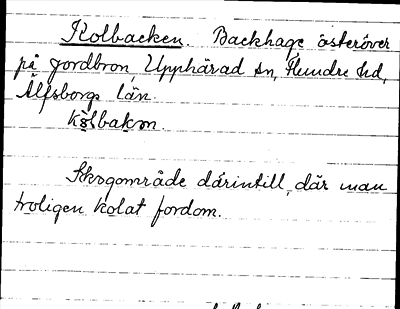 Kolbacken. Backhage österöver
på Jordbron, Upphärad sn, Flundre hd,
Älfsborgs län.
kɔlbakən.
Skogområde därintill, där man
troligen kolat fordom.